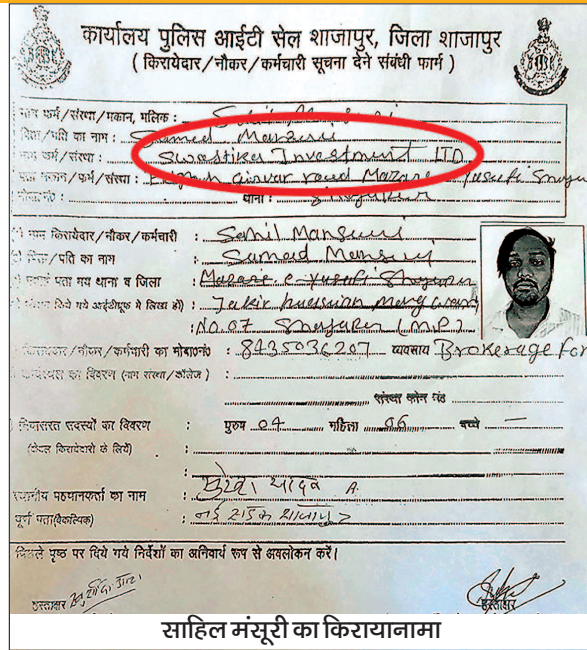 कार्यालय पुलिस आईटी सेल शाजापुर, जिला शाजापुर
( किरायेदार/नौकर/कर्मचारी सूचना देने संबंधी फार्म )
नाम फर्म/संस्था/मकान, मलिक : Sahil Mansuri
पिता/पति का नाम : Samad Mansuri
नाम फर्म/संस्था : Swastika Investment LTD
पता मकान/फर्म/संस्था : girvar road Mazare Yusufi
मोबा0नं0 : थाना :
नाम किरायेदार/नौकर/कर्मचारी : Sahil Mansuri
पिता/पति का नाम : Samad Mansuri
पता मय थाना व जिला : Mazare-e-yusufi Shajapur
किये गये आईडीप्रूफ मे लिखा हो) : Jakir hussian marg ward
: No. 07 Shajapur (M.P.)
किरायेदार/नौकर/कर्मचारी का मोबा0नं0 : 8435036207 व्यवसाय Brokerage
का विवरण (नाम संस्था/कॉलेज ) :
संस्था फोन नं0
निवासरत सदस्यों का विवरण : पुरुष 04 महिला 06 बच्चे —
(केवल किरायेदारो के लिये) :
स्थानीय पहचानकर्ता का नाम : यादव
पूर्ण पता(वैकल्पिक) : नई सड़क शाजापुर
पिछले पृष्ठ पर दिये गये निर्देशों का अनिवार्य रूप से अवलोकन करें।
हस्ताक्षर हस्ताक्षर
साहिल मंसूरी का किरायानामा